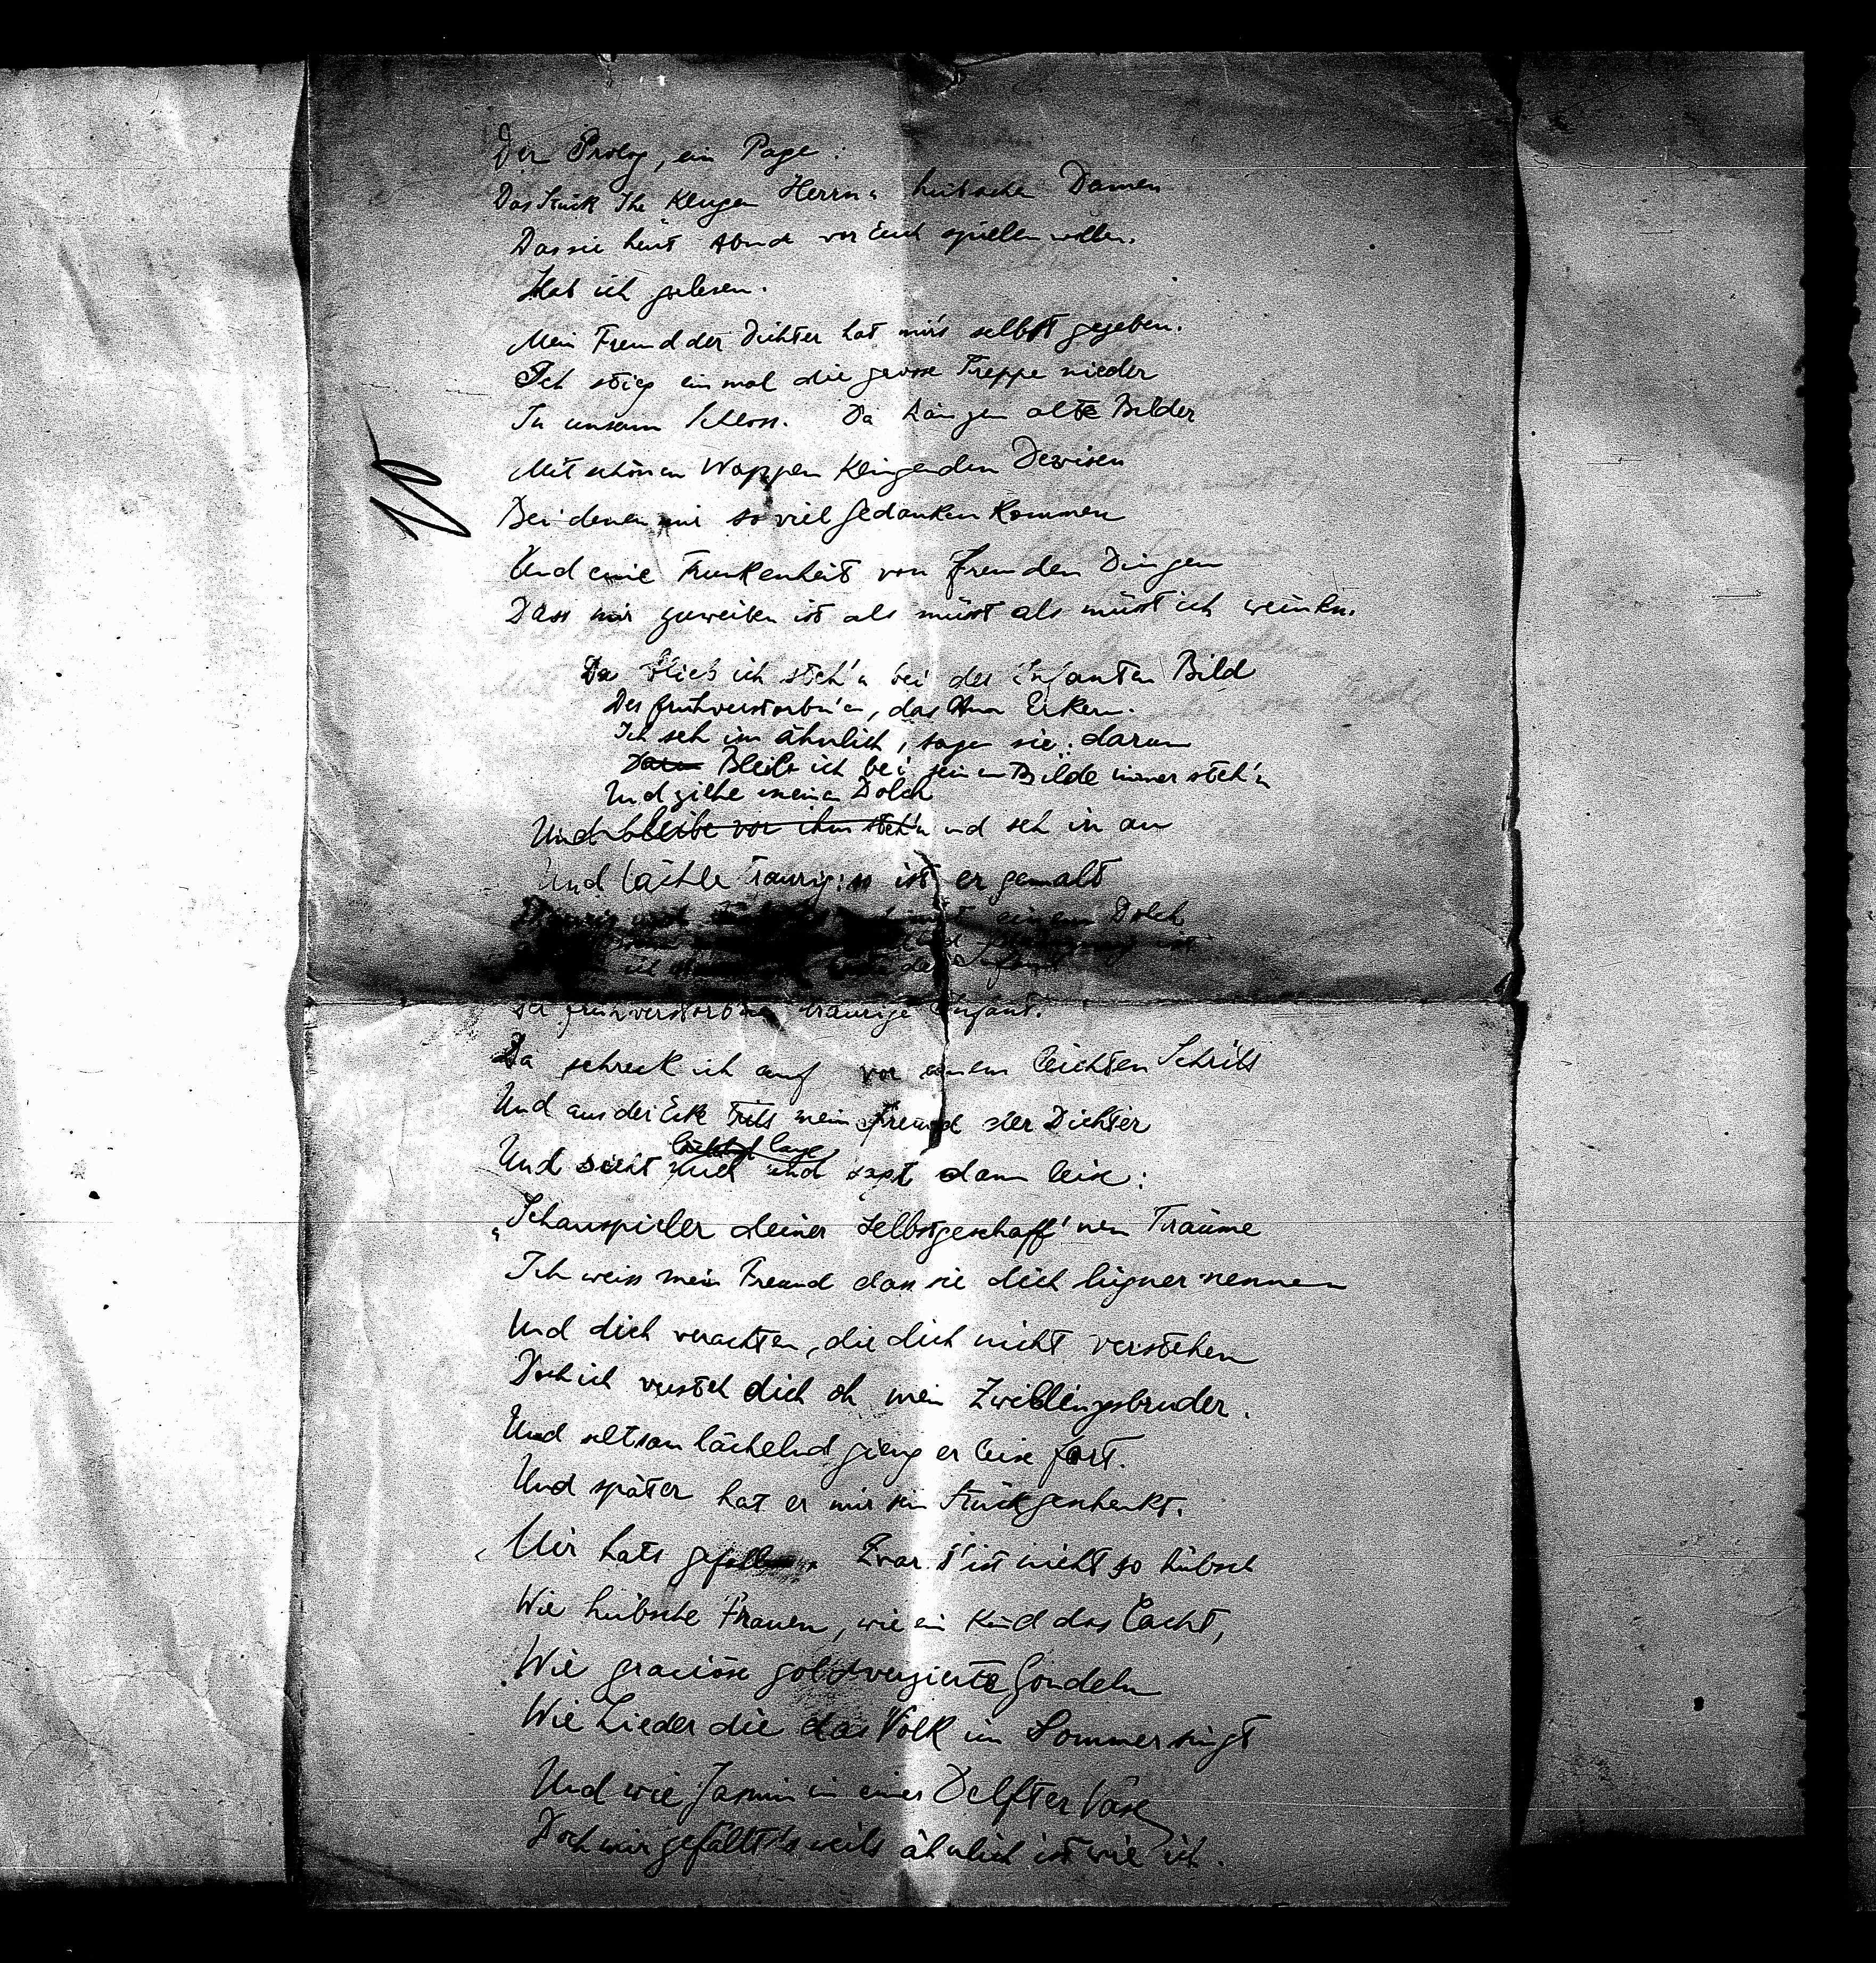 Der Prolog, ein Page:
Das Stück Ihr klugen Herrn u hübschen Damen
Das sie heut Abend vor Euch spielen wollen.
Hab ich gelesen.
Mein Freund der Dichter hat mir's selbst gegeben.
Ich stieg einmal die grosse Treppe nieder
In unserm Schloss. Da hängen alte Bilder
Mit schönen Wappen klingenden Devisen
Bei denen mir so viel Gedanken kommen
Und eine Trunkenheit von fremden Dingen
Dass mir zuweilen ist als müsst als müsst ich weinen.
Da blieb ich steh'n bei des Infanten Bild
Des frühverstorb'nen, das
Ich seh im ähnlich, sagen sie: darum
Bleib ich bei seinem Bilde immer steh'n
Und ziehe meinen Dolch
Und bleibe vor ihm steh'n und seh in an
Und lächle traurig: so ist er gemalt
einem Dolch
ich der Infant
Der frühverstorbne traurige Infant.
Da schreck ich auf vor einem leichten Schritt
Und aus der Ecke tritt mein Freund der Dichter
lange
Und sieht mich und sagt dann leise:
„Schauspieler deiner selbstgeschaff'nen Träume
Ich weiss mein Freund dass sie dich lügner nennen
Und dich verachten, die dich nicht verstehen
Doch ich versteh dich oh mein Zwillingsbruder.
Und seltsam lächelnd gieng er leise fort.
Und später hat er mir sein Stück geschenkt.
Mir hats gefallen. Zwar s'ist nicht so hübsch
Wie hübsche Frauen, wie ein Kind das lacht,
Wie graciöse goldverzierte Gondeln
Wie Lieder die das Volk im Sommer singt
Und wie Jasmin in einer Delfter Vase
Doch mir gefällt's weils ähnlich ist wie ich.